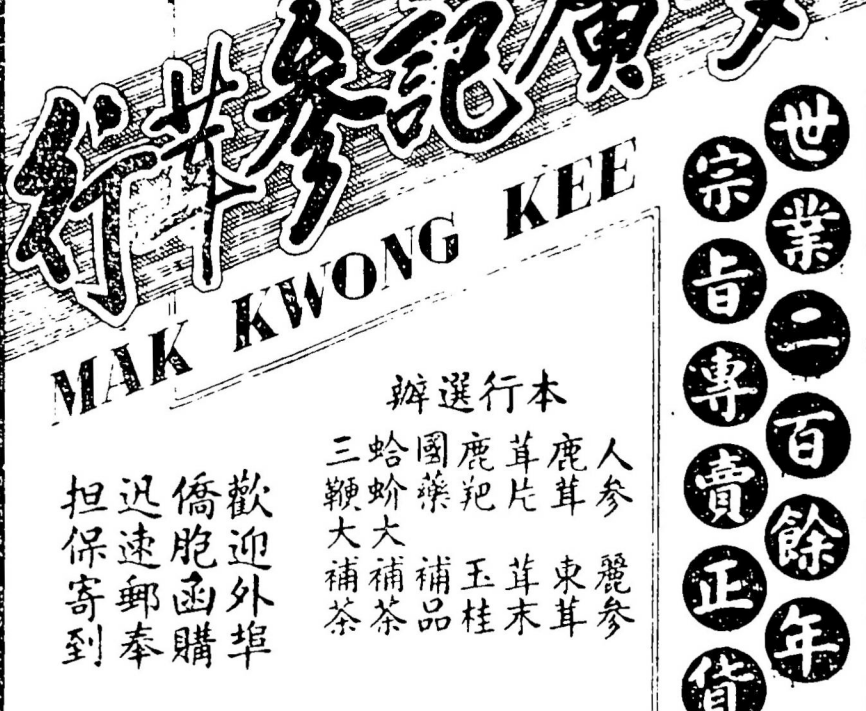 廣記参茸行
MAK KWONG KEE
世業二百餘年
宗旨專賣正貨
本行選辦
人参 麗参
鹿茸 東茸
茸片 茸末
鹿羓 玉桂
國藥 補品
蛤蚧大補茶
三鞭大補茶
歡迎外埠
僑胞函購
迅速郵奉
担保寄到